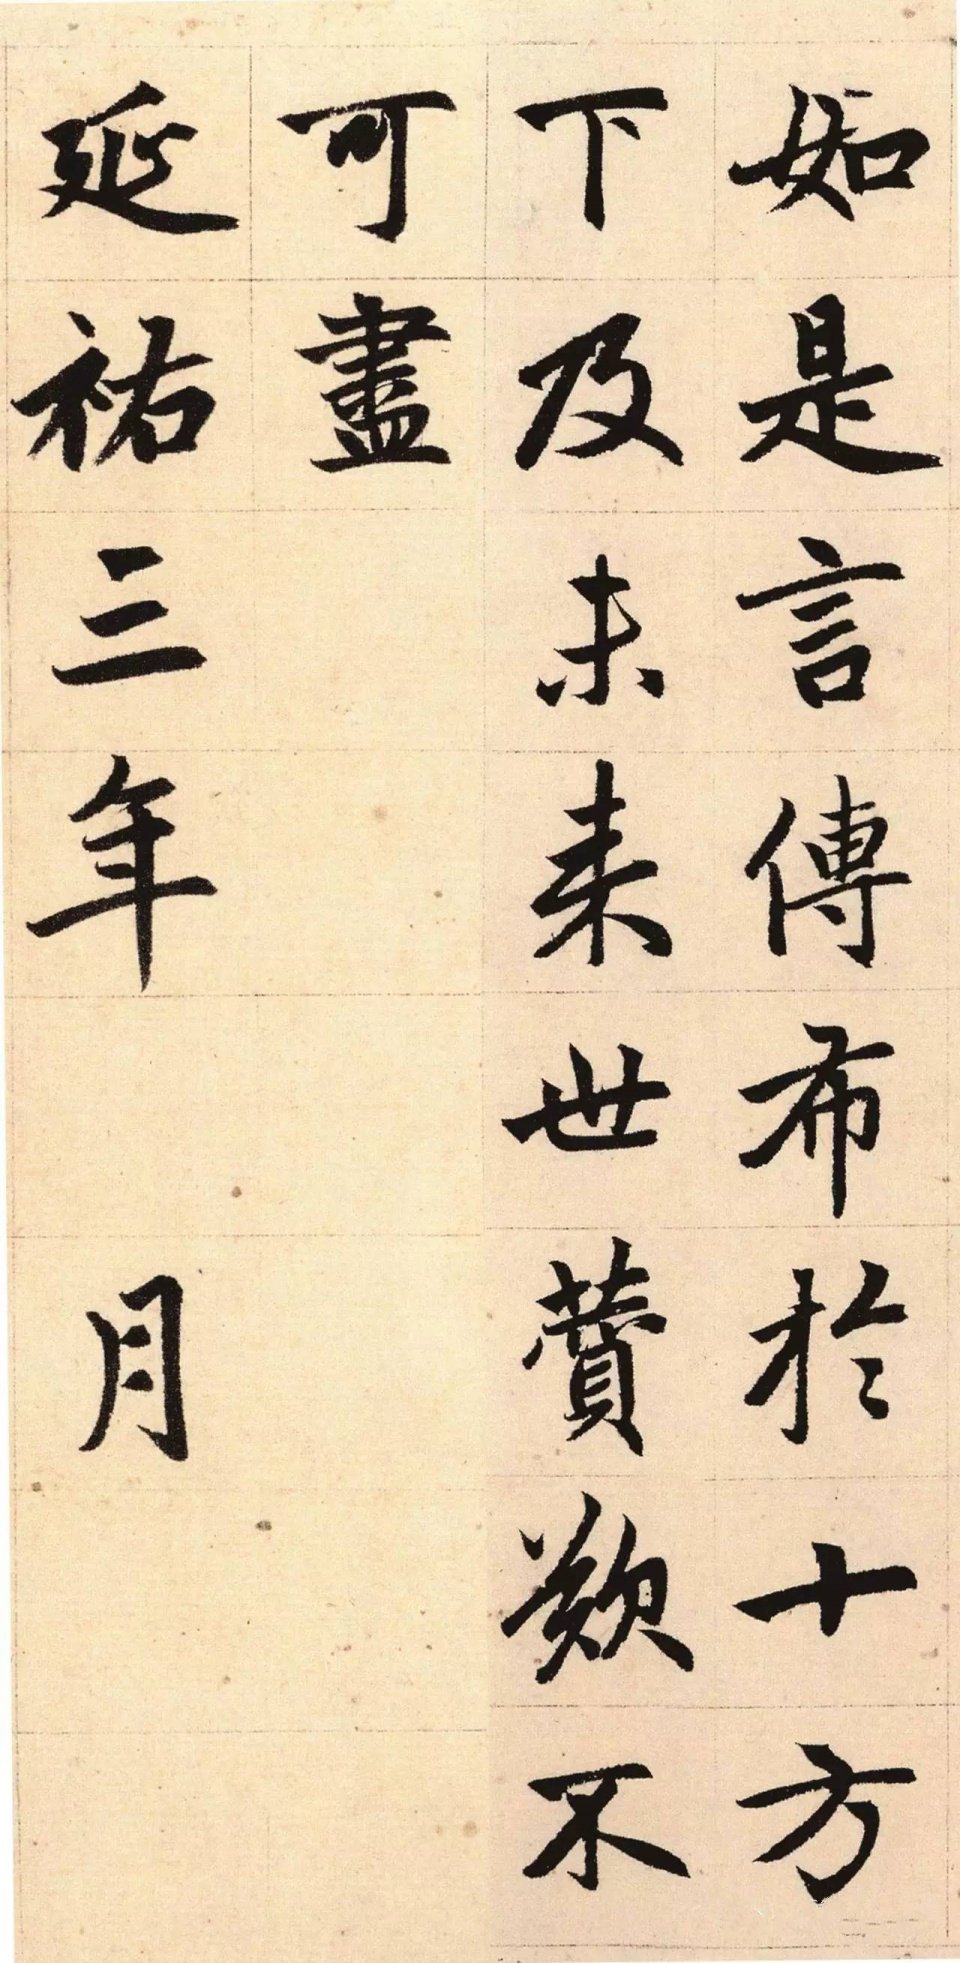 如是言傳布於十方
下及未来世賛歎不
可盡
延祐三年　月